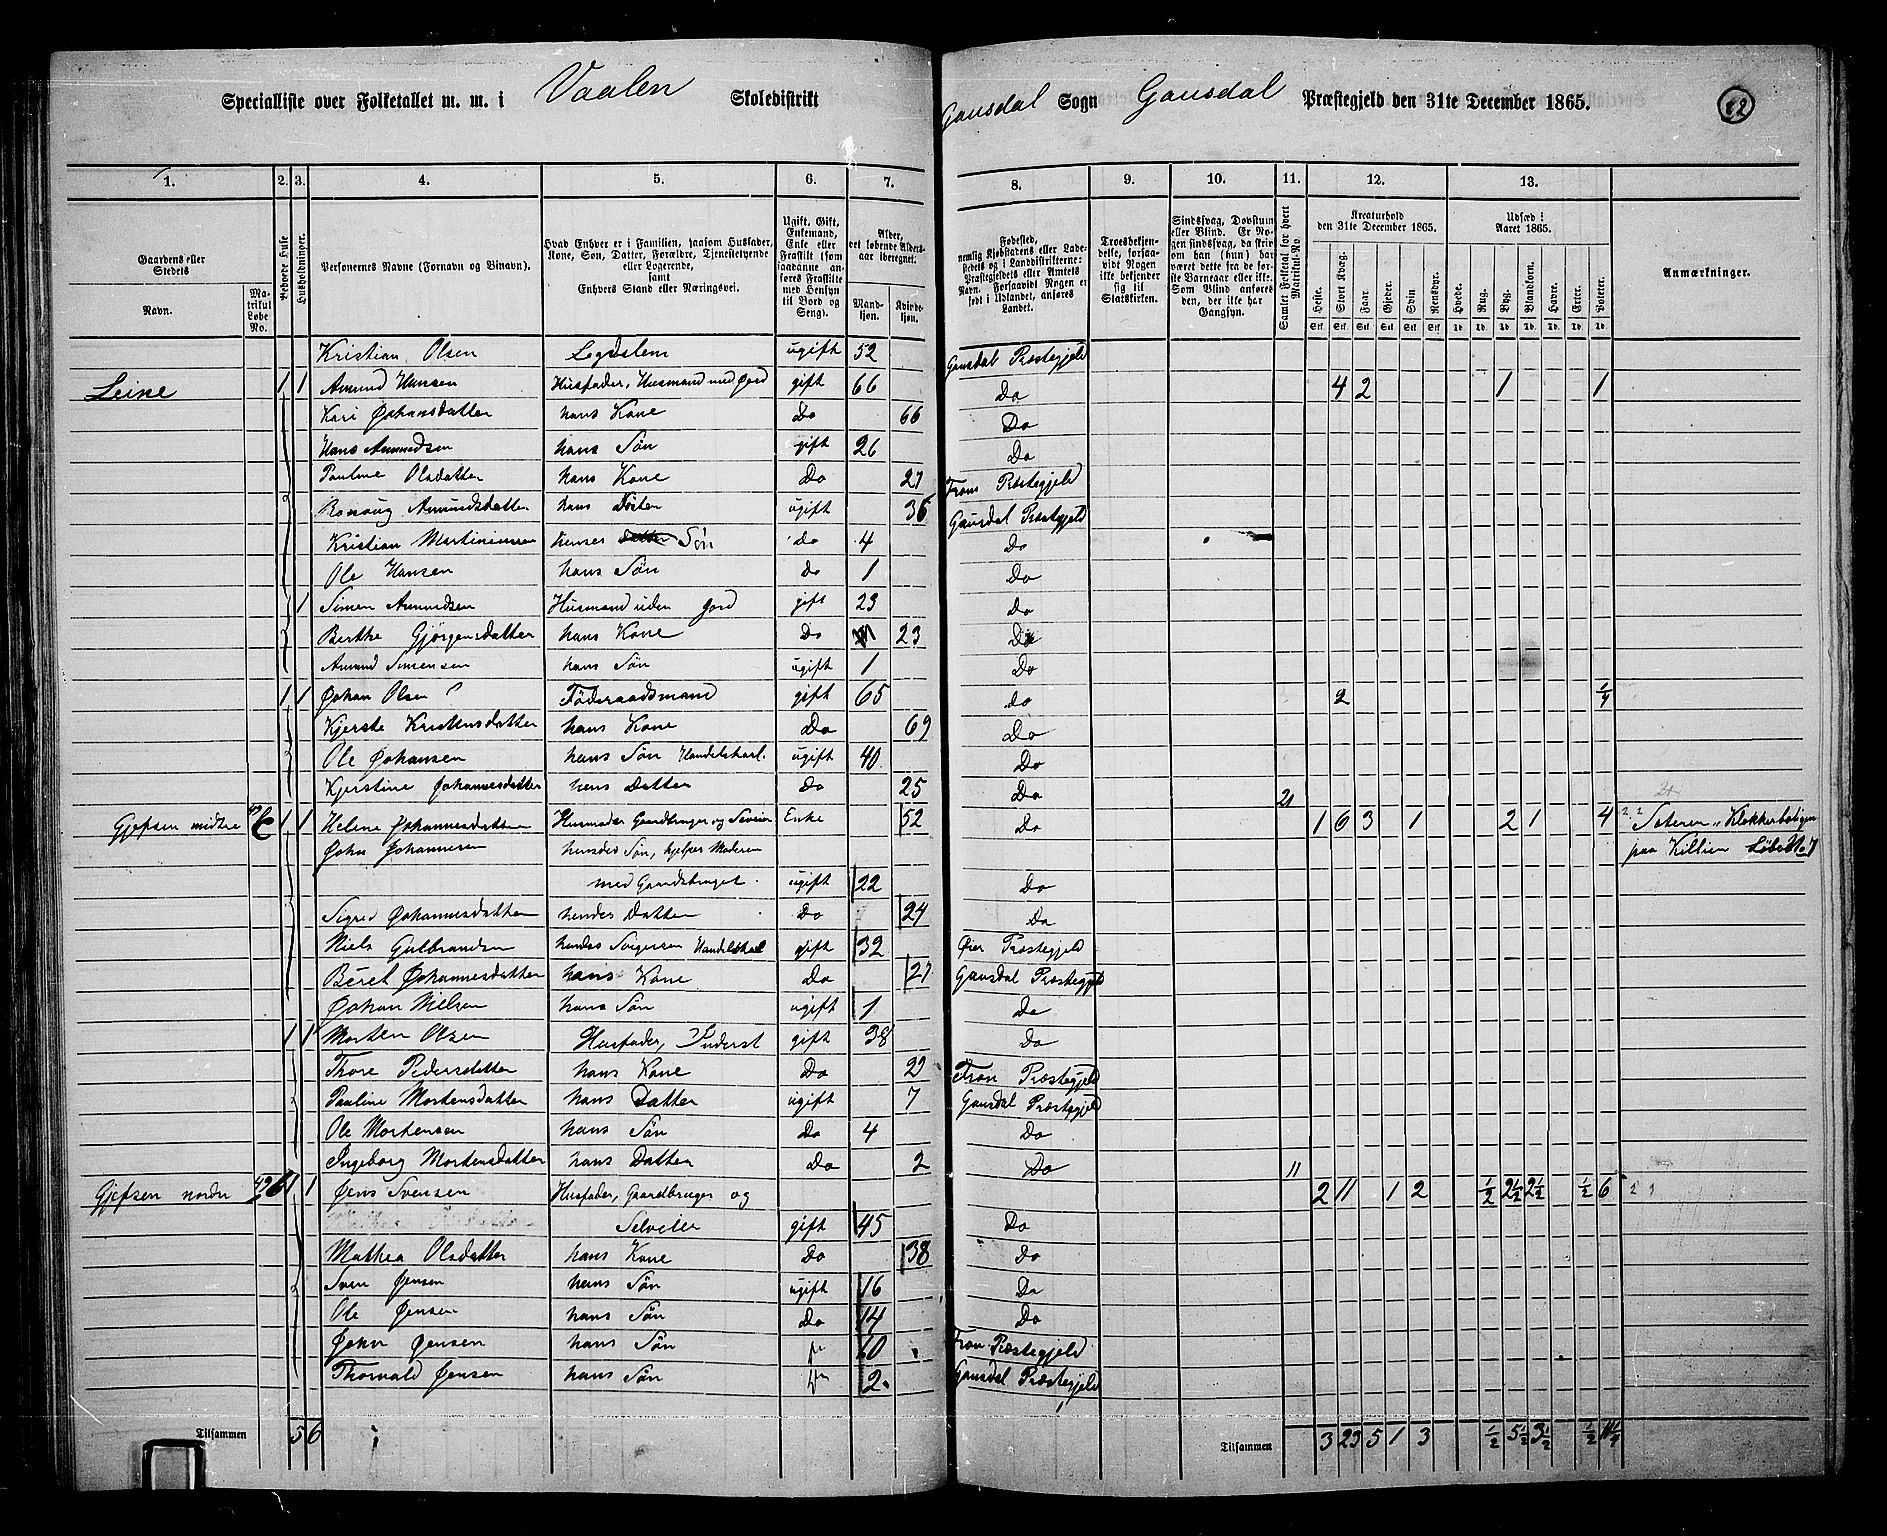 Specialliste over Folketallet m. m. i Vaalen Skoledistrikt Gausdal Sogn Gausdal Præstegjeld den 31te December 1865.
1. 2. 3. 4. 5. 6. 7. 8. 9. 10. 11. 12. 13.
Gaardens eller Stedets
Navn.
Matrikul Løbe No.
Beboede Huse
Husholdninger.
Personernes Navne (Fornavn og Binavn).
Hvad Enhver er i Familien, saasom Husfader, Kone, Søn, Datter, Forældre, Tjenestetyende eller Logerende,
samt
Enhvers Stand eller Næringsvei.
Ugift, Gift, Enkemand, Enke eller Fraskilt (som saadanne anføres Fraskilte med Hensyn til Bord og Seng).
Alder, det løbende Aldersaar iberegnet.
Mandkjøn.
Kvindekjøn.
Fødested, nemlig Kjøbstadens eller Ladestedets eller i Landdistrikterne: Præstegjeldets eller Amtets Navn. Forsaavidt Nogen er født i Udlandet, anføres Landet.
Troesbekjendelse, forsaavidt Nogen ikke bekjender sig til Statskirken.
Sindssvag, Døvstum eller Blind. Er Nogen sindssvag, da skrives om han (hun) har været dette fra de første Barneaar eller ikke. Som Blind anføres den, der ikke har Gangsyn.
Samlet Folketal for hvert Matrikul-No.
Kreaturhold den 31te December 1865.
Heste. Stort Kvæg. Faar. Gjeder. Svin. Rensdyr.
Udsæd i Aaret 1865.
Hvede. Rug. Byg. Blandkorn. Havre. Erter. Poteter.
Anmærkninger.
Kristian Olsen Legdslem ugift 52 Gausdal Præstegjeld
Leine 1 1 Amund Hansen Husfader, Husmand med Jord gift 66 Do 4 2 1 1
Kari Johansdatter hans Kone Do 66 Do
Hans Amundsen hans Søn gift 26 Do
Pauline Olsdatter hans Kone Do 27 Frons Præstegjeld
Ronaug Amundsdatter hans Datter ugift 36 Gausdal Præstegjeld
Kristian Martiniussen hendes Søn Do 4 Do
Ole Hansen hans Søn Do 1 Do
1 Simen Amundsen Husmand uden Jord gift 23 Do
Berthe Gjørgensdatter hans Kone Do 23 Do
Amund Simensen hans Søn ugift 1 Do
1 1 Johan Olsen Föderaadsmand gift 65 do 2 1/4
Kjerste Kristensdatter hans Kone Do 69 Do
Ole Johansen hans Søn Handelskarl. ugift 40 Do
Kjerstine Johannesdatter hans Datter Do 25 Do 21
Gjefsen midtre 1 1 Helene Johannesdatter Husmoder Gaardbruger og Selveier Enke 52 Do 1 6 3 1 2 1 4 Sæteren, Klokkerboligen
John Johannesen hendes Søn, hjelper Moderen paa Killien
med Gaardsbruget. ugift 22 Do
Sigrid Johannesdatter hendes Datter Do 24 Do
Niels Gulbrandsen hendes Svigersøn Handelskarl gift 32 Øier Præstegjeld
Beret Johannesdatter hans Kone Do 27 Gausdal Præstegjeld
Johan Nielsen hans Søn ugift 1 Do
1 1 Morten Olsen Husfader, Inderst gift 38 Do
Thore Pedersdatter hans Kone Do 29 Fron Præstegjeld
Pauline Mortensdatter hans Datter ugift 7 Gausdal Præstegjeld
Ole Mortensen hans Søn Do 4 Do
Ingeborg Mortensdatter hans Datter Do 2 Do 11
Gjefsen nordre 1 1 Jens Svensen Husfader, Gaardbruger og 2 11 1 2 1/2 2 1/2 2 1/2 1/2 6
Selveier gift 45 Do
Mathea Olsdatter hans Kone Do 38 Do
Sven Jensen hans Søn ugift 16 Do
Ole Jensen hans Søn Do 14 Do
John Jensen hans Søn Do 10 Fron Præstegjeld
Thorvald Jensen hans Søn Do 2 Gausdal Præstegjeld
Tilsammen 5 6 Tilsammen 3 23 5 1 3 1/2 5 1/2 3 1/2 1/2 11 1/4